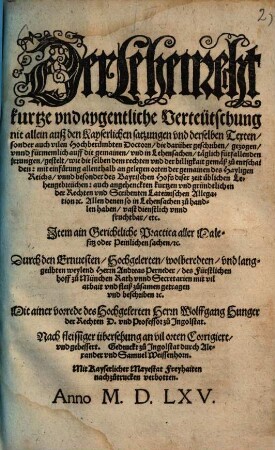 2)
Der Lehenrecht
kurtze vnd aygentliche Verteütschung
nit allein auß den Kayserlichen satzungen vnd derselben Texten,
sonder auch vilen Hochberümbten Doctorn, die darüber geschriben, gezogen,
vnnd fürnemlich auff die gemainen, vnd in Lehensachen, täglich fürfallenden
jrrungen, gestelt, wie die selben dem rechten vnd der billigkait gemäß zů entschai
den: mit einfürung allenthalb an gelegen orten der gemainen des Hayligen
Reichs, vnnd besonder des Bayrischen Hofs diser zeit üblichen Le-
hengebreüchen: auch angehenckten kurtzen vnd gründtlichen
der Rechten vnd Scribenten Lateinischen Allega-
tion ec. Allen denen so in Lehensachen zů hand
len haben, vast dienstlich vnnd
fruchtbar, etc.
Item ain Gerichtliche Practica aller Male-
fitz oder Peinlichen sachen, ec.
Durch den Ernuesten, Hochgelerten, wolberedten, vnd lang-
geübten weylend Herrn Andreas Perneder, des Fürstlichen
hoff zů München Rath vnnd Secretarien mit vil
arbait vnd fleiß zůsamen getragen
vnd beschriben ec.
Mit ainer vorrede des Hochgelerten Herrn Wolffgang Hunger
der Rechten D. vnd Professor zů Ingolstat.
Nach fleissiger übersehung an vil orten Corrigiert,
vnd gebessert. Gedruckt zů Ingolstat durch Ale-
xander vnd Samuel Weissenhorn.
Mit Kayserlicher Mayestat Freyhaiten
nachzůtrucken verbotten.
Anno M. D. LXV.